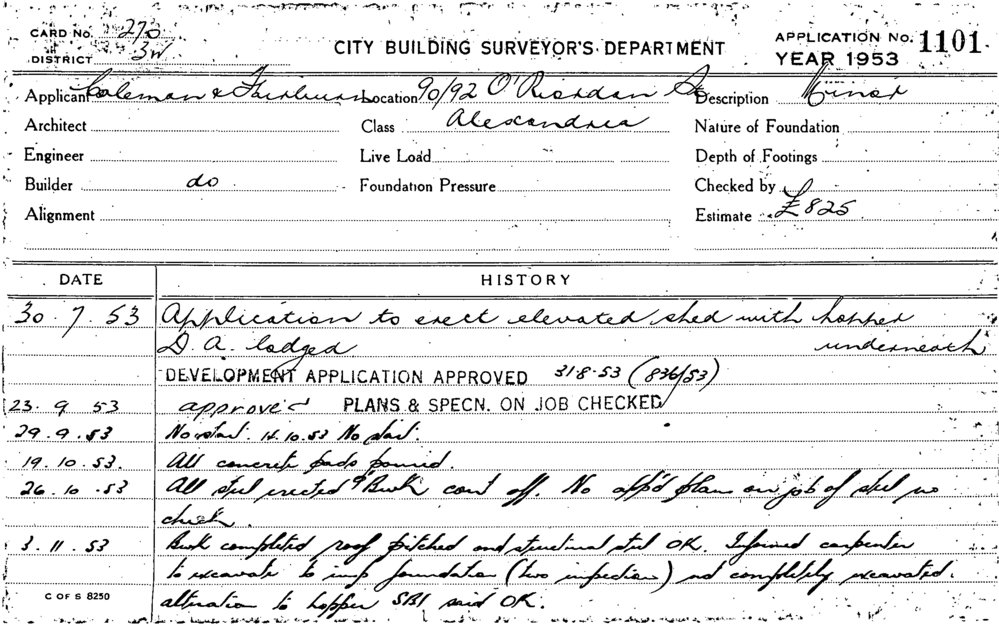 CARD No. 273
DISTRICT 3W
CITY BUILDING SURVEYOR'S DEPARTMENT
APPLICATION No. 1101
YEAR 1953
Applicant Coleman & Fairburn Location 90/92 O'Riordan St Description Minor
Architect Class Alexandria Nature of Foundation
Engineer Live Load Depth of Footings
Builder do Foundation Pressure Checked by
Alignment Estimate £825
DATE HISTORY
30.7.53 Application to erect elevated shed with hopper
D.A. lodged underneath
DEVELOPMENT APPLICATION APPROVED 31·8·53 (836/53)
23.9.53 approved PLANS & SPECN. ON JOB CHECKED
29.9.53 No start. 14.10.53 No start.
19.10.53. All concrete pads poured.
26.10.53 All steel erected & Bwk off. No app'd plan on job of steel no
check.
3.11.53 Bwk completed roof pitched and structural steel OK. Informed carpenter
to excavate to foundation (two inspection) not completely excavated.
alteration to hopper SBI said OK.
C OF S 8250